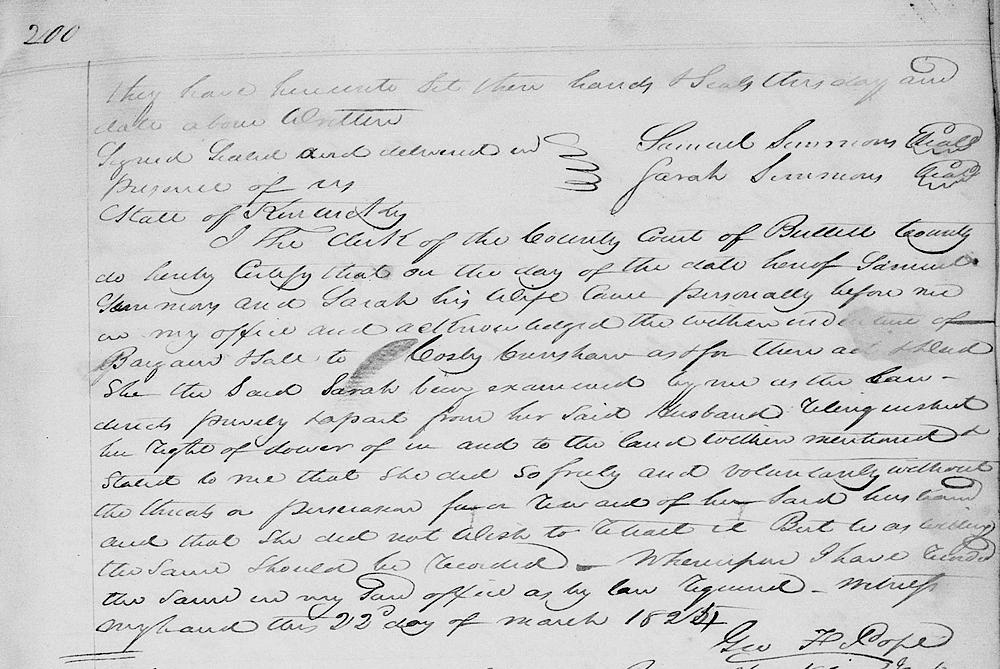 200
they have hereunto set there hands & Seals this day and
date above Written
Signed Sealed and delivered in Samuel Simmons Seal
presence of us Sarah Simmons Seal
State of Kentucky
I the Clerk of the County Court of Bullitt County
do hereby Certify that on the day of the date hereof Samuel
Simmons and Sarah his Wife Came personally before me
in my office and acknowledged the within indenture of
Bargain & Sale to Cosby Crenshaw as & for there act & deed
She the Said Sarah being examined by me as the Law
directs privily & apart from her Said Husband Relinquished
her Right of dower of in and to the land within mentioned &
Stated to me that She did So freely and voluntarily without
the threats or persuasion fear or reward of her Said husband
and that She did not Wish to retract it But was willing
the Same Should be recorded - Whereupon I have
the Same in my Said office as by law required - Witness
my hand this 22d day of march 1824
Geo F Pope